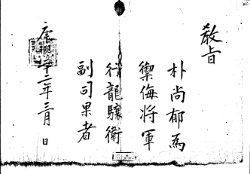 敎旨
朴尚郁爲
禦侮將軍
行龍驤衛
副司果者
康熙
二年三月 日